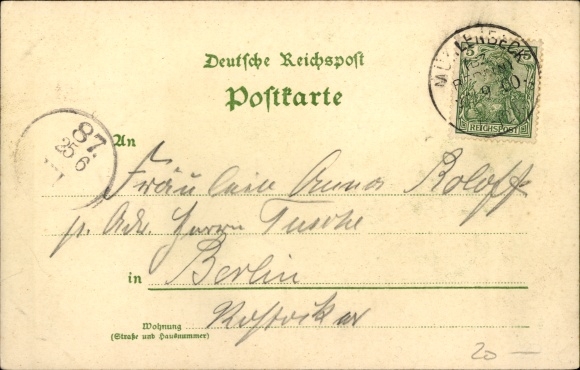 Deutsche Reichspost
Postkarte
MÜHLENBECK
REICHSPOST
87.
25 6
An
Fräulein Anna Roloff
p. Adr. Herrn Tusche
in Berlin
Rostocker
Wohnung
(Straße und Hausnummer)
20 —